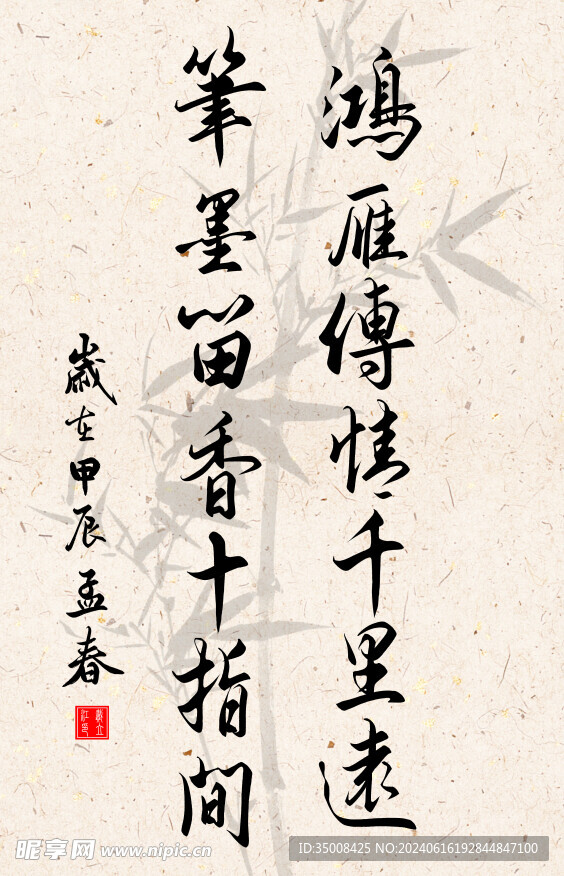 鴻雁傳情千里遠
筆墨留香十指間
歲在甲辰孟春
昵享网 www.nipic.cn
ID:35008425 NO:20240616192844847100